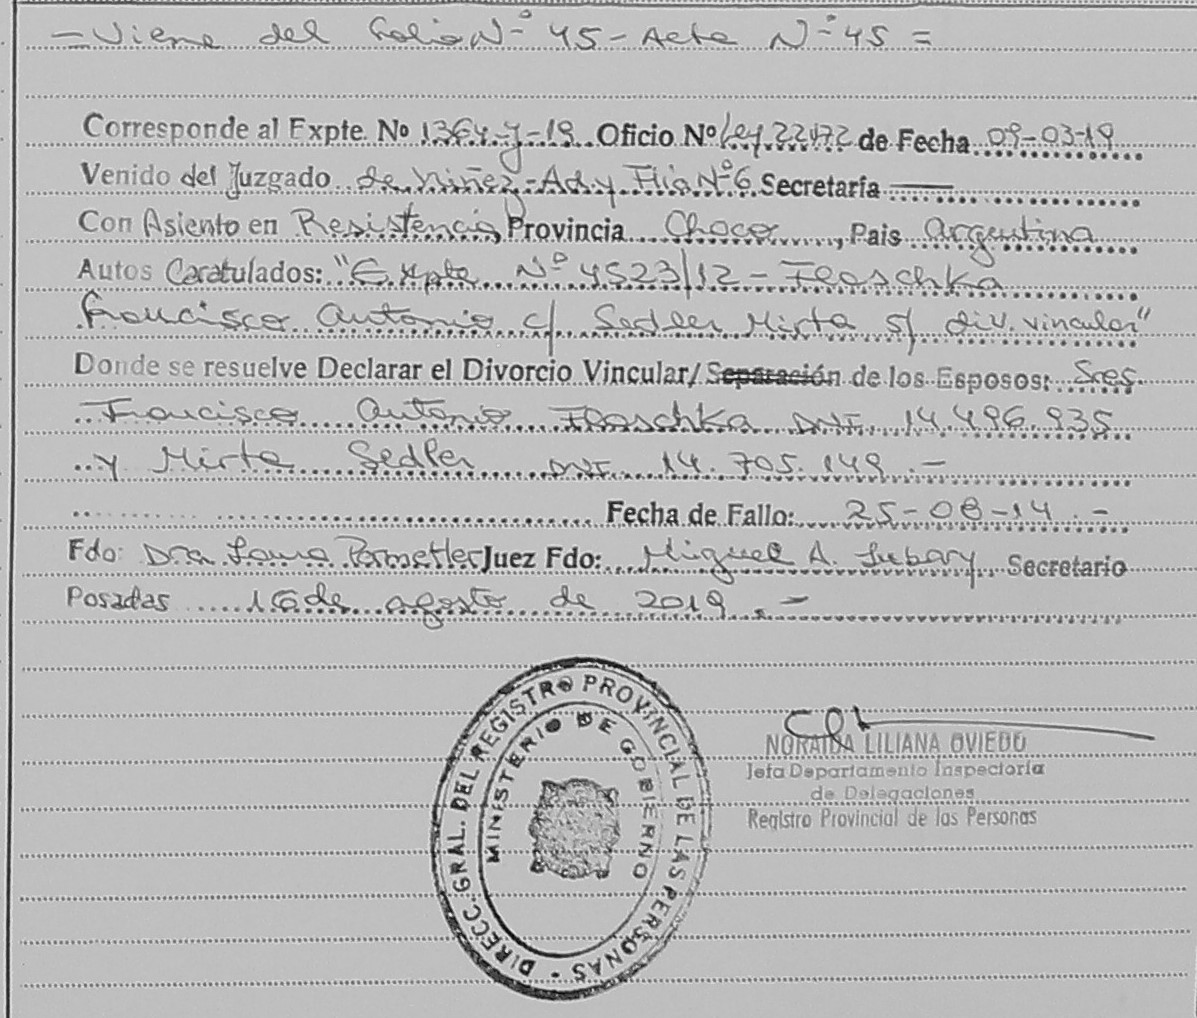 = Viene del Folio Nº 45 - Acta Nº 45 =
Corresponde al Expte. Nº 1364-J-19 Oficio Nº Ley 22172 de Fecha 09-03-19
Venido del Juzgado de Niñez-Ad.y Flia Nº 6 Secretaría ——
Con Asiento en Resistencia, Provincia Chaco, Pais Argentina
Autos Caratulados: "Expte Nº 4523/12 - Flaschka
Francisco Antonio c/ Sedler Mirta s/ div. vincular"
Donde se resuelve Declarar el Divorcio Vincular/ Separación de los Esposos: Sres.
Francisco Antonio Flaschka DNI. 14.496.935
y Mirta Sedler DNI. 14.705.149.-
Fecha de Fallo: 25-08-14.-
Fdo: Dra Juez Fdo: Miguel A. Secretario
Posadas 16 de agosto de 2019.-
DIRECC. GRAL. DEL REGISTRO PROVINCIAL DE LAS PERSONAS -
MINISTERIO DE GOBIERNO
NORAIDA LILIANA OVIEDO
Jefa Departamento Inspectoría
de Delegaciones
Registro Provincial de las Personas